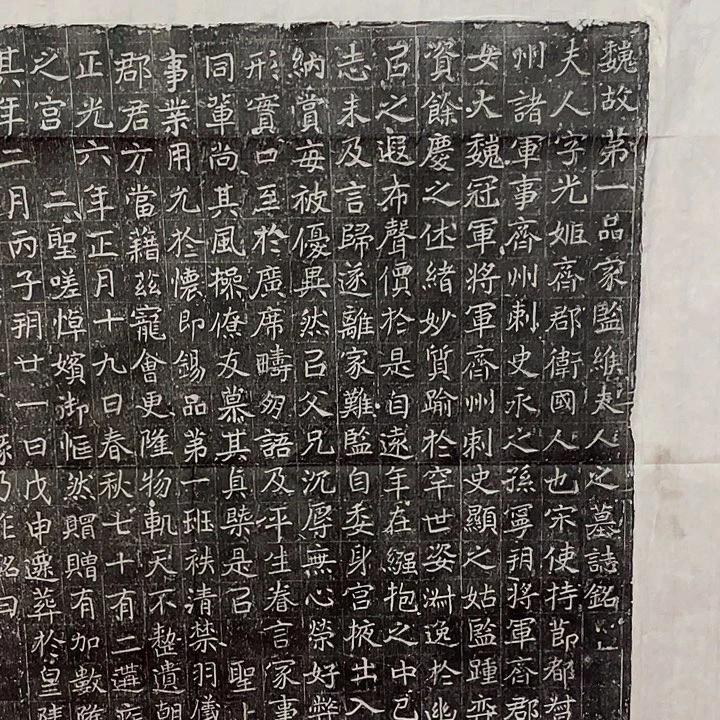 魏故第一品家監緱夫人之墓誌銘
夫人字光姬齊郡衛國人也宋使持節都督
州諸軍事齊州刺史永之孫寧朔將軍齊郡
女大魏冠軍將軍齊州刺史顯之姑監踵弈
資餘慶之休緒妙質踰於罕世姿淋逸於幽
㠯之遐布聲價於是自遠年在繈抱之中已
志未及言歸遂離家難監自委身宮掖出入
納賞每被優異然㠯父兄沉辱無心榮好弊
形實口至於廣席疇匆語及平生眷言家事
同輩尚其風操僚友慕其真槩是㠯 聖上
事業用允於懷即錫品第一班秩清禁羽儀
郡君方當藉茲寵會更隆物軌天不憗遺朝
正光六年正月十九日春秋七十有二遘疾
之宮 二聖嗟悼嬪御恇然賵贈有加數隆
其年二月丙子朔廿一日戊申遷葬於皇陵
乃作銘曰